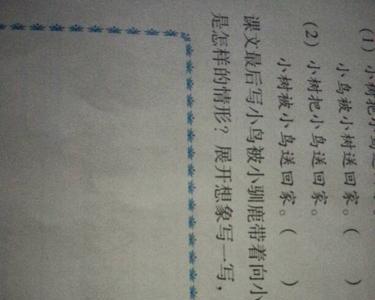 (1) 小树把小鸟
小鸟被小树送回家。(    )
(2) 小树把小鸟送回家。
小树被小鸟送回家。(    )
课文最后写小鸟被小驯鹿带着向小
是怎样的情形？展开想象写一写，